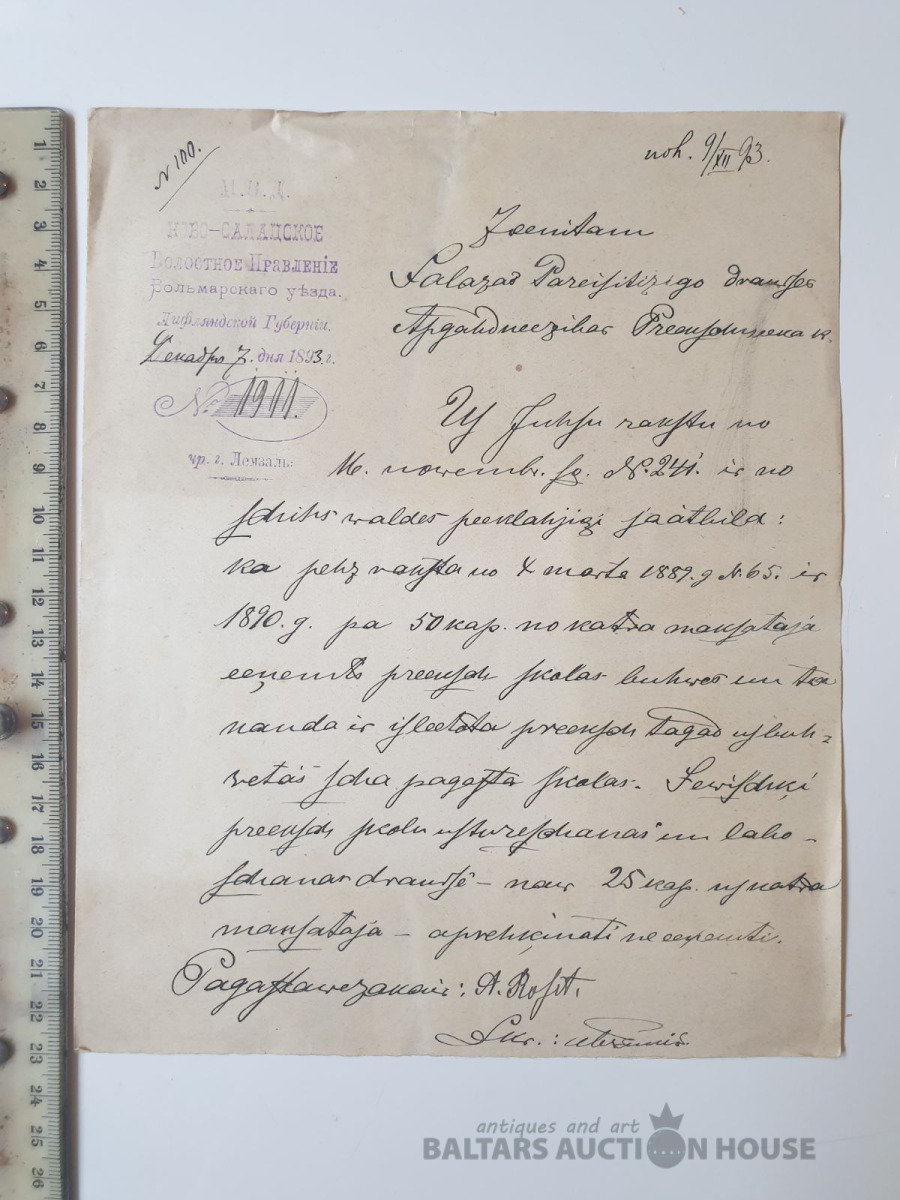 N 100.
noh. 9/XII 93.
М.В.Д.
НОВО-САЛАЦСКОЕ
Волостное Правленіе
Вольмарскаго уѣзда.
Лифляндской Губерніи.
Декабря 7. дня 1893 г.
№ 1911.
чр. г. Лемзаль.
Zeenitam
Salazas Pareisitizigo draudses
Apgahdneezibas Preekschneeka k.
Us Juhsu rakstu no
16. nowembr. sg. №. 241. ir no
schihs waldes peeklahjigi jaatbild:
ka pehz raksta no 4 marta 1889. g №. 65. ir
1890. g. pa 50 kap. no katra maksataja
eeņemts preeksch skolas buhwes un ta
nauda ir isleetota preeksch tagad usbuh=
wetás scha pagasta skolas. Sewischķi
preeksch skolu ustureschanas un labo-
schanas draudsê - naw 25 kap. us katra
maksataja - aprehķinati ne eeņemti.
Pagastawezakais: A. Rosit.
Skr.:
1
2
3
4
5
6
7
8
9
10
11
12
13
14
15
16
17
18
19
20
21
22
23
24
25
26
antiques and art
BALTARS AUCTION HOUSE